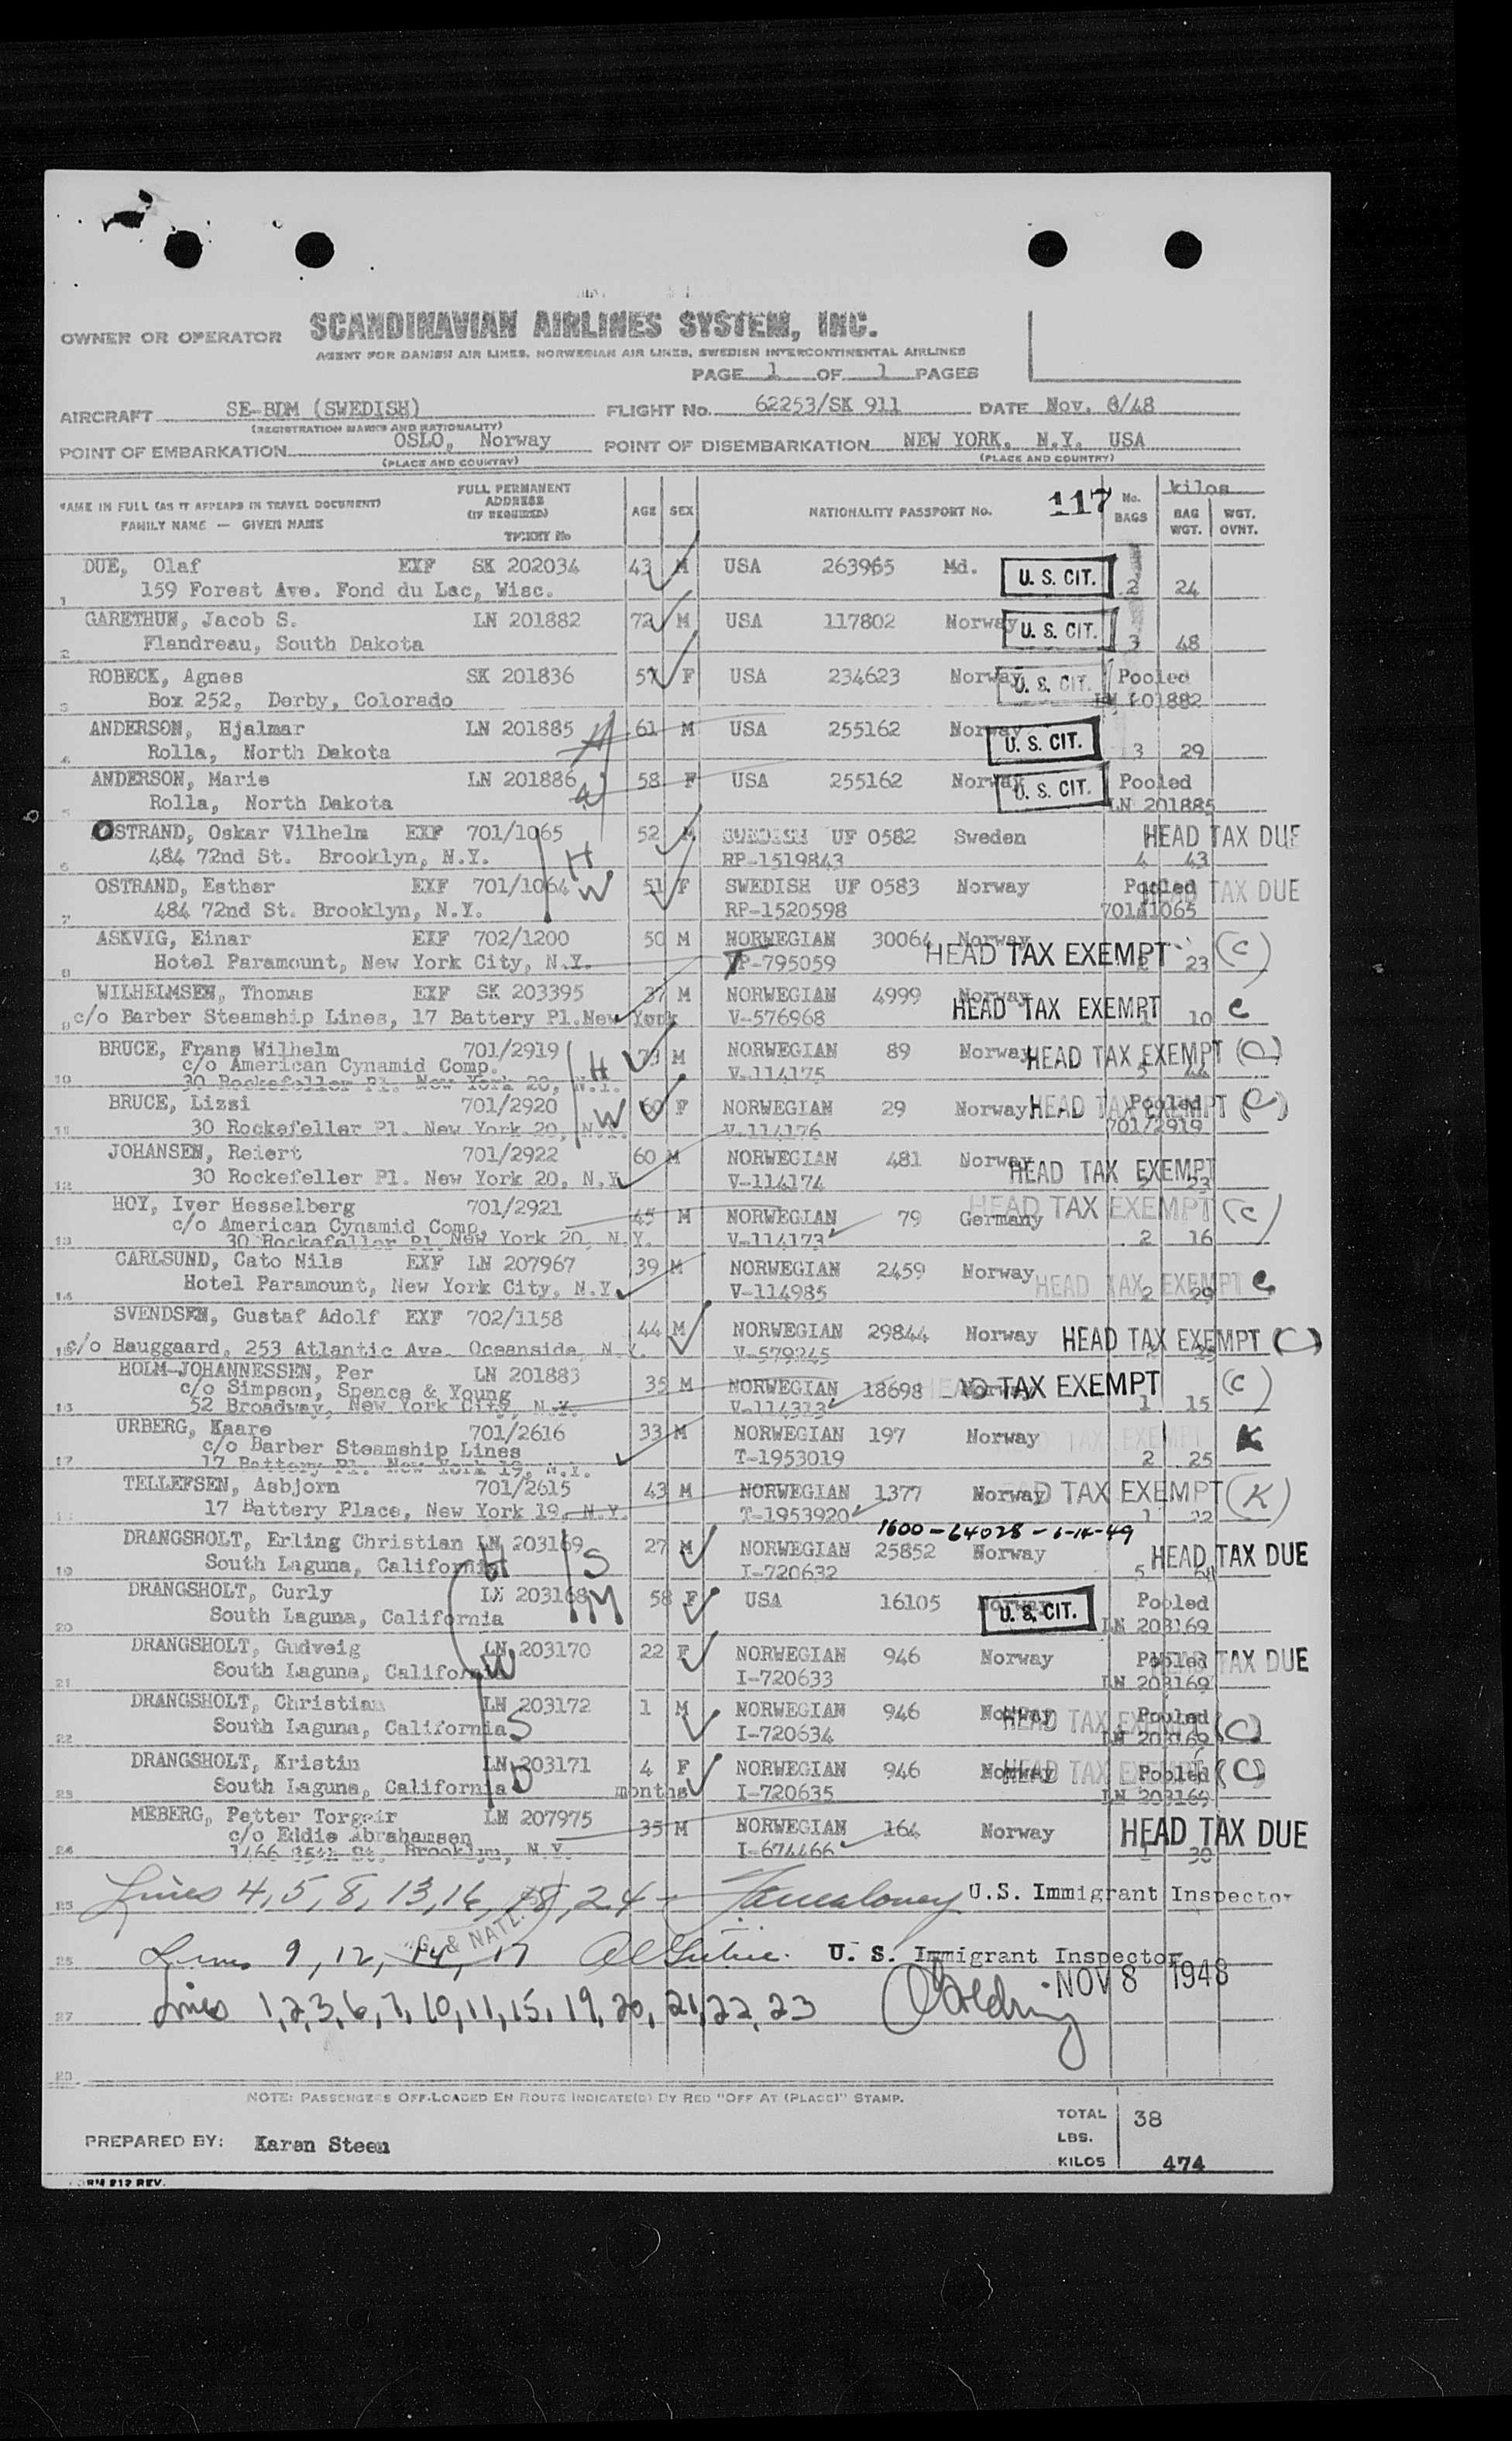 OWNER OR OPERATOR SCANDINAVIAN AIRLINES SYSTEM, INC.
AGENT FOR DANISH AIR LINES, NORWEGIAN AIR LINES, SWEDISH INTERCONTINENTAL AIRLINES
PAGE 1 OF 1 PAGES
AIRCRAFT SE-BDM (SWEDISH) FLIGHT No. 62253/SK 911 DATE Nov. 8/48
(REGISTRATION MARKS AND NATIONALITY)
POINT OF EMBARKATION OSLO, Norway POINT OF DISEMBARKATION NEW YORK, N.Y. USA
(PLACE AND COUNTRY) (PLACE AND COUNTRY)
NAME IN FULL (AS IT APPEARS IN TRAVEL DOCUMENT) FAMILY NAME — GIVEN NAME
FULL PERMANENT ADDRESS (IF REQUIRED) TICKET No
AGE SEX NATIONALITY PASSPORT No. 117 No. BAGS kilos BAG WGT. WGT. OVNT.
DUE, Olaf EXF SK 202034 43 M USA 263965 Md. U. S. CIT. 2 24
1 159 Forest Ave. Fond du Lac, Wisc.
GARETHUN, Jacob S. LN 201882 72 M USA 117802 Norway U. S. CIT. 3 48
2 Flandreau, South Dakota
ROBECK, Agnes SK 201836 57 F USA 234623 Norway U. S. CIT. Pooled
3 Box 252, Derby, Colorado LN 201882
ANDERSON, Hjalmar LN 201885 H 61 M USA 255162 Norway U. S. CIT.
4 Rolla, North Dakota 3 29
ANDERSON, Marie LN 201886 W 58 F USA 255162 Norway U. S. CIT. Pooled
5 Rolla, North Dakota LN 201885
OSTRAND, Oskar Vilhelm EXF 701/1065 52 M SWEDISH UF 0582 Sweden HEAD TAX DUE
6 484 72nd St. Brooklyn, N.Y. H RP-1519843 4 43
OSTRAND, Esther EXF 701/1064 W 51 F SWEDISH UF 0583 Norway Pooled HEAD TAX DUE
7 484 72nd St. Brooklyn, N.Y. RP-1520598 701/1065
ASKVIG, Einar EXF 702/1200 50 M NORWEGIAN 30064 Norway HEAD TAX EXEMPT (C)
8 Hotel Paramount, New York City, N.Y. TP-795059 2 23
WILHELMSEN, Thomas EXF SK 203395 37 M NORWEGIAN 4999 Norway HEAD TAX EXEMPT C
9 c/o Barber Steamship Lines, 17 Battery Pl. New York V-576968 1 10
BRUCE, Frans Wilhelm 701/2919 H 73 M NORWEGIAN 89 Norway HEAD TAX EXEMPT (C)
c/o American Cynamid Comp.
10 30 Rockefeller Pl. New York 20, N.Y. V-114175 5 44
BRUCE, Lizzi 701/2920 W 60 F NORWEGIAN 29 Norway HEAD TAX EXEMPT Pooled (C)
11 30 Rockefeller Pl. New York 20, N.Y. V-114176 701/2919
JOHANSEN, Reiert 701/2922 60 M NORWEGIAN 481 Norway HEAD TAX EXEMPT
12 30 Rockefeller Pl. New York 20, N.Y. V-114174 2 23
HOY, Iver Hesselberg 701/2921 45 M NORWEGIAN 79 Germany HEAD TAX EXEMPT (C)
c/o American Cynamid Comp.
13 30 Rockefeller Pl. New York 20, N.Y. V-114173 2 16
CARLSUND, Cato Nils EXF LN 207967 39 M NORWEGIAN 2459 Norway HEAD TAX EXEMPT C
14 Hotel Paramount, New York City, N.Y. V-114985 2 29
SVENDSEN, Gustaf Adolf EXF 702/1158 44 M NORWEGIAN 29844 Norway HEAD TAX EXEMPT (C)
15 c/o Hauggaard, 253 Atlantic Ave. Oceanside, N.Y. V-579245 25
HOLM-JOHANNESSEN, Per LN 201883 35 M NORWEGIAN 18698 Norway HEAD TAX EXEMPT (C)
c/o Simpson, Spence & Young
16 52 Broadway, New York City, N.Y. V-114313 1 15
URBERG, Kaare 701/2616 33 M NORWEGIAN 197 Norway HEAD TAX EXEMPT K
c/o Barber Steamship Lines T-1953019
17 17 Battery Pl. New York 19, N.Y. 2 25
TELLEFSEN, Asbjorn 701/2615 43 M NORWEGIAN 1377 Norway HEAD TAX EXEMPT (K)
17 Battery Place, New York 19, N.Y. T-1953920 1 22
1600-64028-6-14-49
DRANGSHOLT, Erling Christian LN 203169 27 M NORWEGIAN 25852 Norway HEAD TAX DUE
19 South Laguna, California H S I-720632 5
DRANGSHOLT, Curly LN 203168 M 58 F USA 16105 Norway U. S. CIT. Pooled
20 South Laguna, California LN 203169
DRANGSHOLT, Gudveig LN 203170 22 F NORWEGIAN 946 Norway Pooled HEAD TAX DUE
21 South Laguna, California W I-720633 LN 203169
DRANGSHOLT, Christian LN 203172 1 M NORWEGIAN 946 Norway HEAD TAX EXEMPT Pooled (C)
22 South Laguna, California S I-720634 LN 203169
DRANGSHOLT, Kristin LN 203171 4 F NORWEGIAN 946 Norway HEAD TAX EXEMPT Pooled (C)
23 South Laguna, California D months I-720635 LN 203169
MEBERG, Petter Torgeir LN 207975 35 M NORWEGIAN 164 Norway HEAD TAX DUE
c/o Eddie Abrahamsen
24 1466 85th St. Brooklyn, N.Y. I-674466 1 30
25 Lines 4, 5, 8, 13, 16, 18, 24 - U.S. Immigrant Inspector
& NATL.
26 Lines 9, 12, 14, 17 U. S. Immigrant Inspector
NOV 8 1948
27 Lines 1, 2, 3, 6, 7, 10, 11, 15, 19, 20, 21, 22, 23
28
NOTE: PASSENGERS OFF-LOADED EN ROUTE INDICATE(D) BY RED "OFF AT (PLACE)" STAMP.
TOTAL 38
LBS.
PREPARED BY: Karen Steen
KILOS 474
FORM 212 REV.